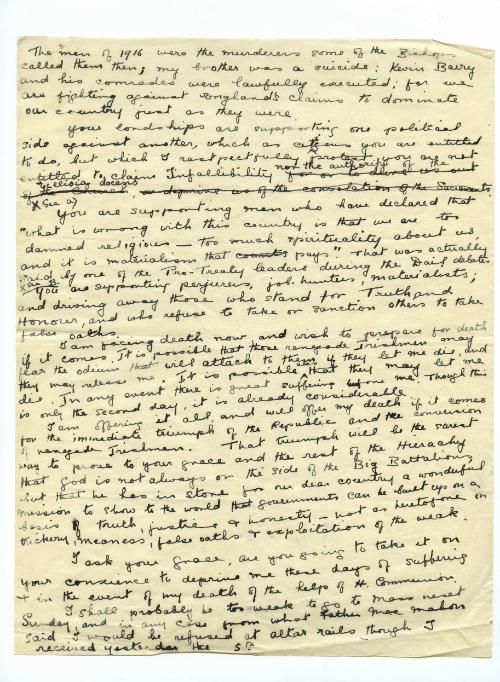 The men of 1916 were the murderers some of the Bishops
called them then; my brother was a suicide: Kevin Barry
and his comrades were lawfully executed; for we
are fighting against England's claims to dominate
our country just as they were.
Your lordships are supporting one political
side against another, which as citizens you are entitled
to do, but which I respectfully protest you are not
entitled to claim Infallibility for or to
not the authority of the
Ecclesia docens
of the Church, or deprive us of the consolation of the Sacraments.
X See a)
You are supporting men who have declared that
"what is wrong with this country is that we are too
damned religious — too much spirituality about us,
and it is materialism that counts pays". That was actually
said by one of the Pro-Treaty leaders during the Dail debates
See B.
You are supporting perjurers, job-hunters, materialists,
and driving away those who stand for Truth and
Honour, and who refuse to take or sanction others to take
false oaths.
I am facing death now, and wish to prepare for death
if it comes. It is possible that those renegade Irishmen may
fear the odium that will attach to them if they let me die, and
they may release me. It is possible also that they may let me
die. In any event there is great suffering before me. Though this
is only the second day, it is already considerable.
I am offering it all, and will offer my death if it comes
for the immediate triumph of the Republic and the conversion
of renegade Irishmen. That triumph will be the surest
way to prove to your grace and the rest of the Hierachy
that God is not always on the side of the Big Battalions,
but that he has in store for our dear country a wonderful
mission to show to the world that governments can be built up on a
basis of truth, justice & honesty — not as heretofore on
trickery, meaness, false oaths & exploitation of the weak.
I ask your Grace, are you going to take it on
your conscience to deprive me these days of suffering
& in the event of my death of the help of H. Communion.
I shall probably be too weak to go to Mass next
Sunday, and in any case from what Father Mac Mahon
said I would be refused at altar rails though I
received yesterday the 5th